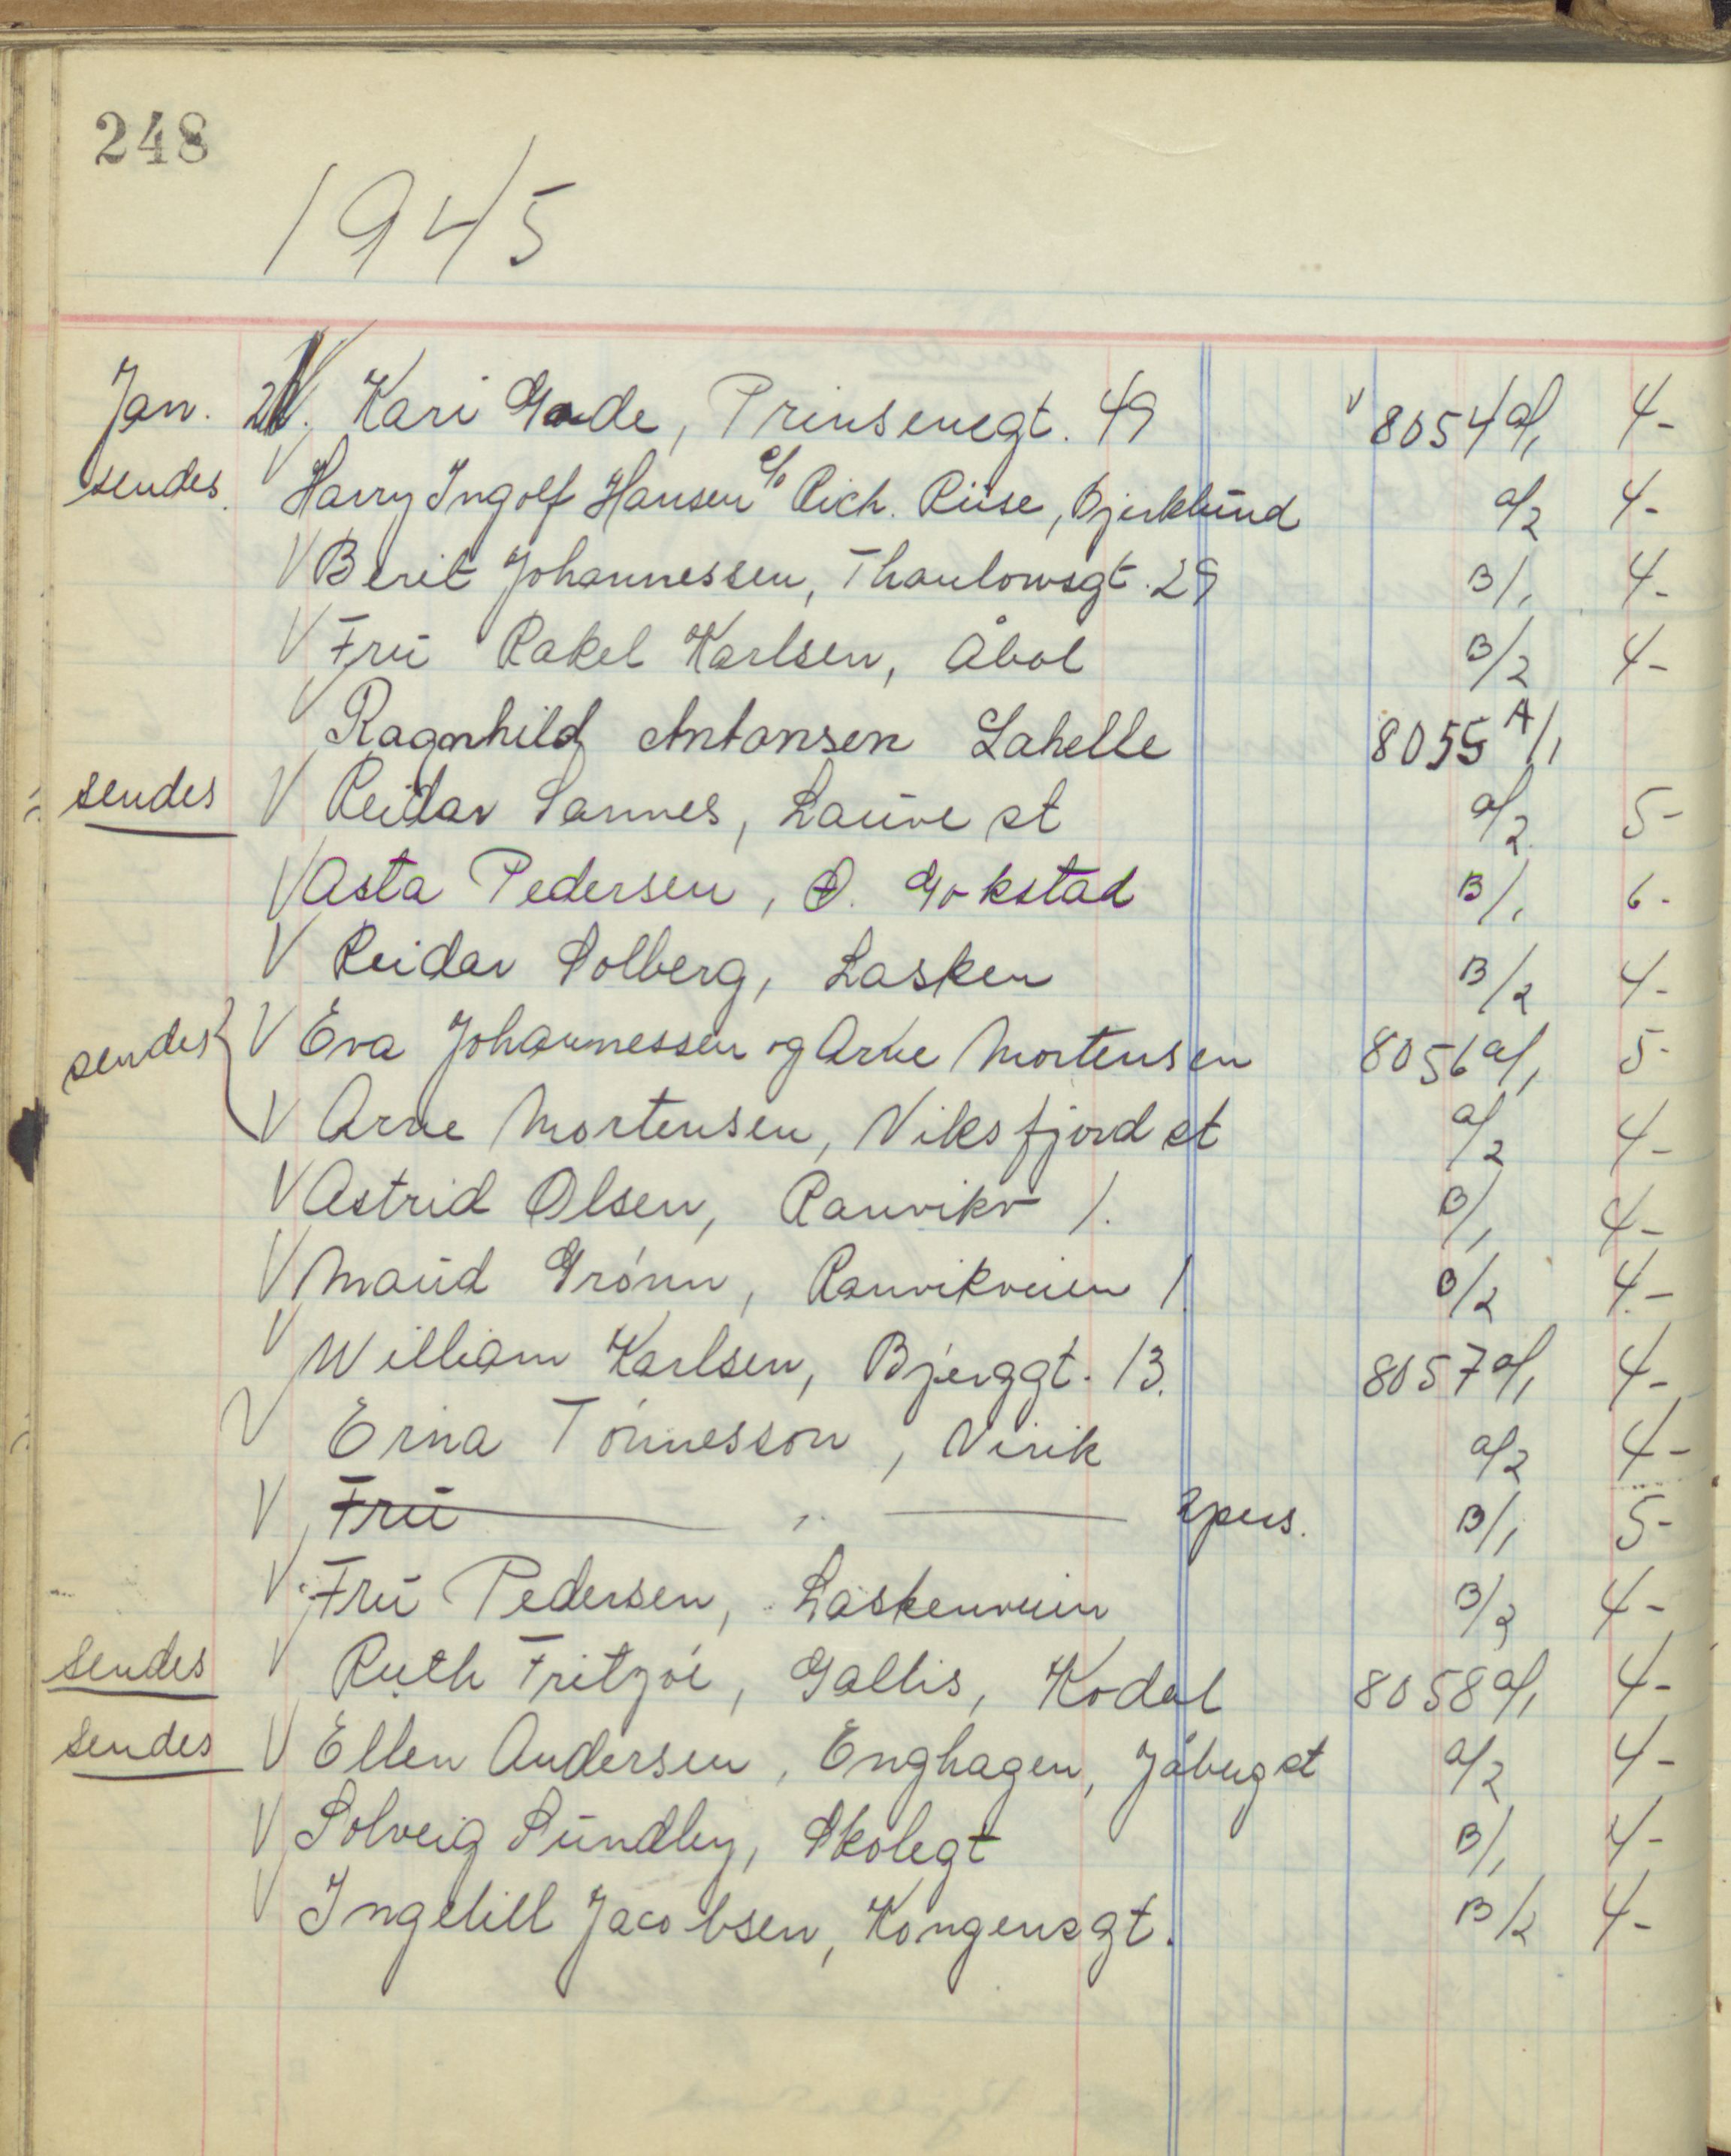 248
1945
Jan. 2 V. Kari Gade, Prinsensgt. 49 V 8054 a/1 4-
sendes. V Harry Ingolf Hansen c/o Rich. Riise, Bjerklund a/2 4-
V Berit Johannessen, Thaulowsgt. 29 B/1 4-
V Fru Rakel Karlsen, Åbol B/2 4-
V Ragnhild Antonsen Lahelle 8055 A/1
sendes V Reidar Sannes, Lauve st a/2 5-
V Asta Pedersen, Ø. Gokstad B/1 6-
V Reidar Solberg, Lasken B/2 4-
sendes { V Eva Johannessen og Arne Mortensen 8056 a/1 5-
V Arne Mortensen, Viksfjord st a/2 4-
V Astrid Olsen, Ranvikv 1. B/1 4-
V Maud Grónn, Ranvikveien 1 B/2 4.-
V William Karlsen, Bjerggt. 13. 8057 a/1 4-
V Erna Tónnesson, Virik a/2 4-
V Fru — " — 2 pers. B/1 5-
V Fru Pedersen, Laskenveien B/2 4-
sendes V Ruth Fritzóe, Gallis, Kodal 8058 a/1 4-
sendes V Ellen Andersen, Enghagen, Jåberg st a/2 4-
V Solveig Sundby, Skolegt B/1 4-
V Ingelill Jacobsen, Kongensgt. B/2 4-